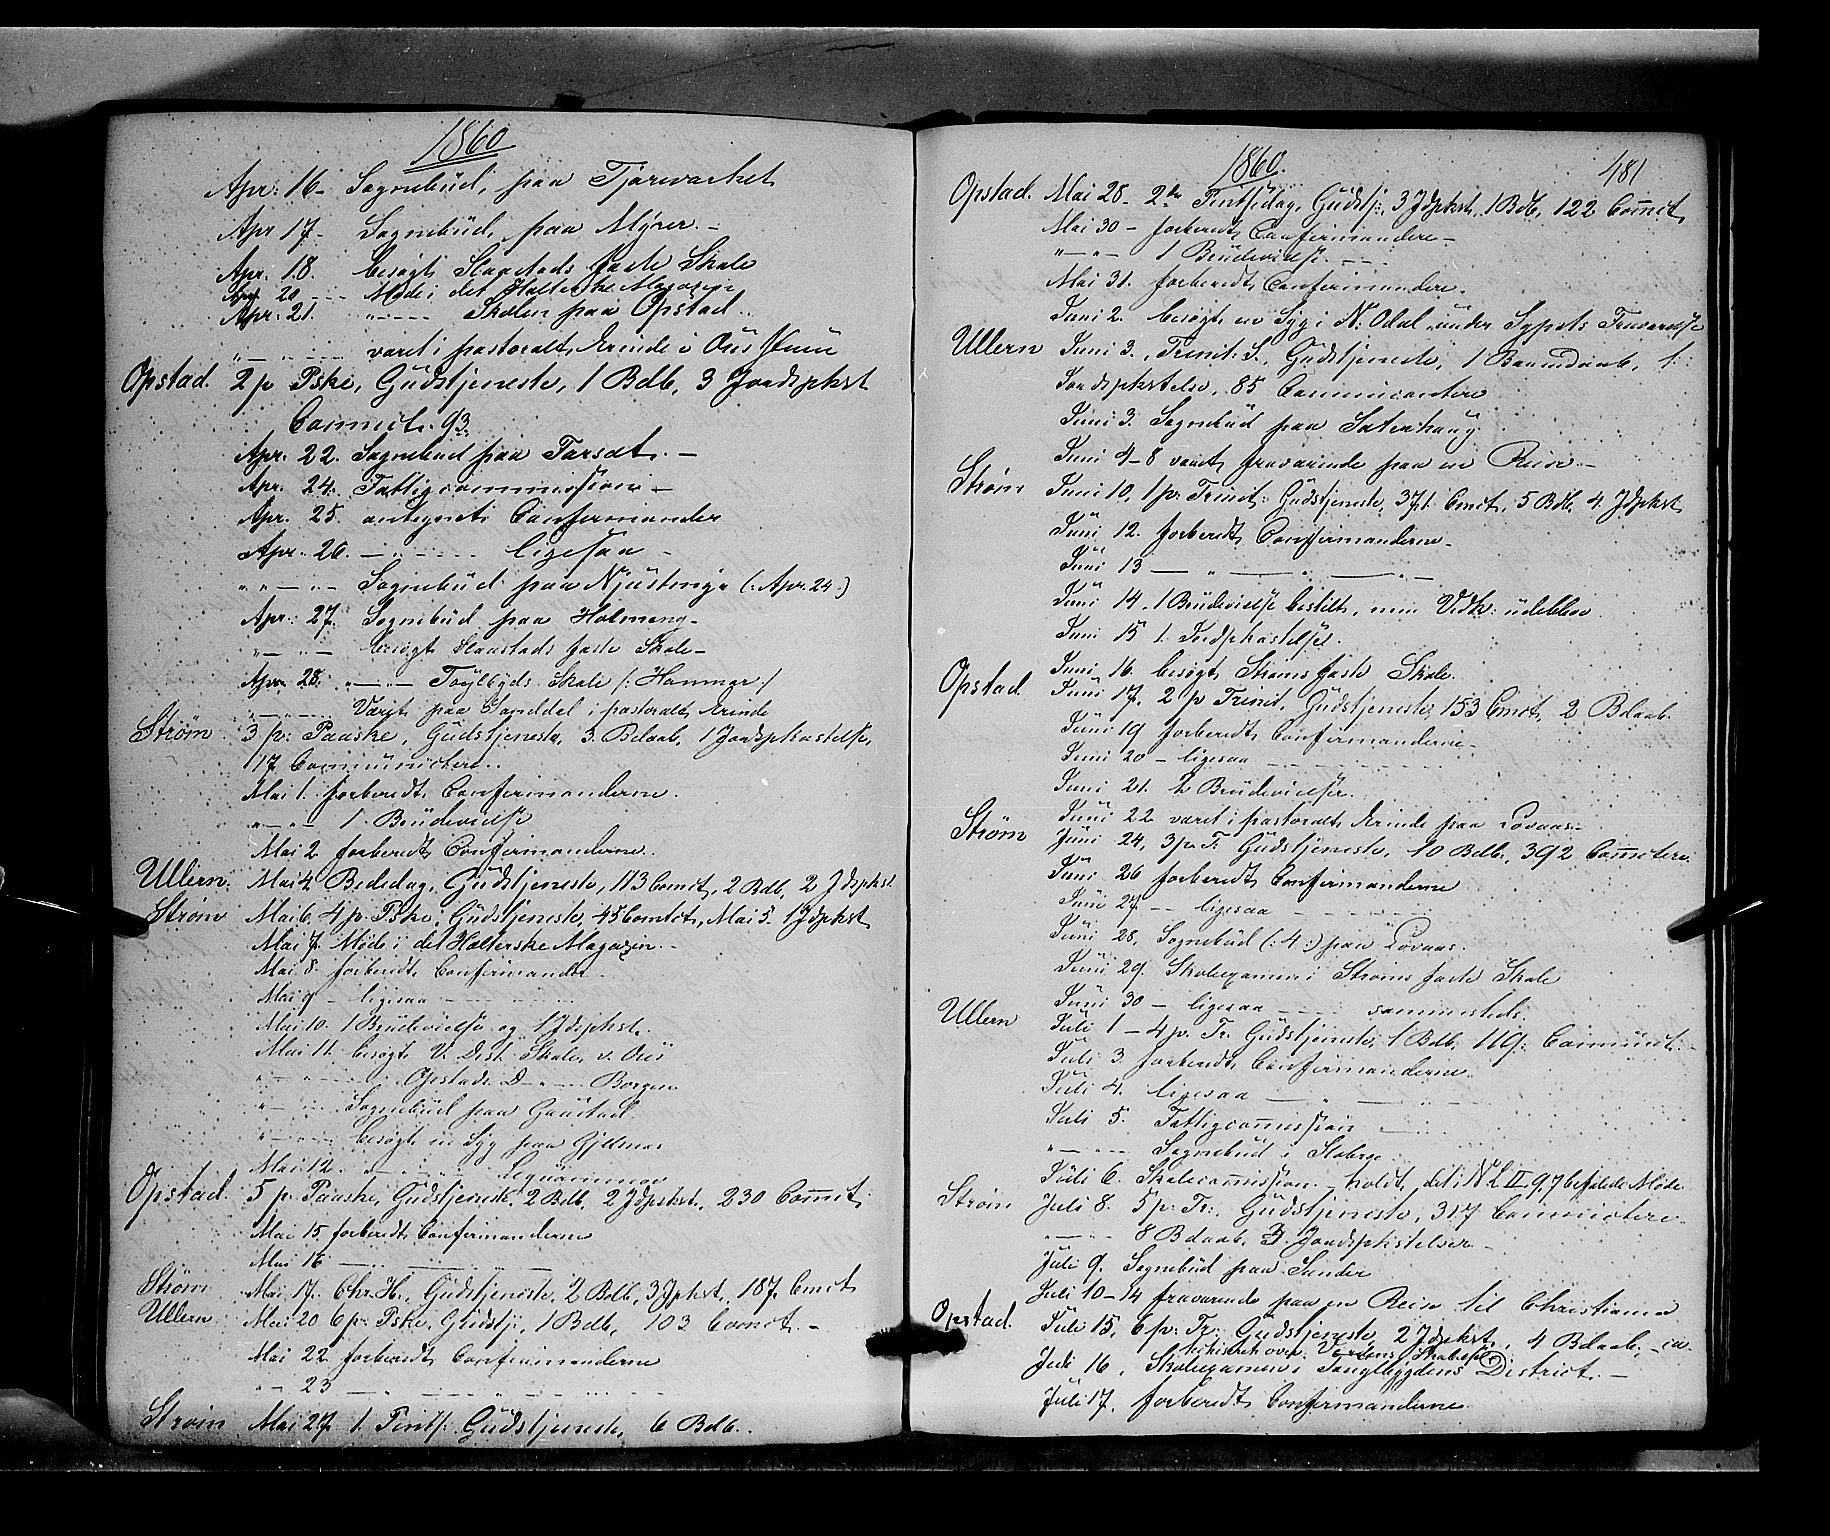 1860
Apr: 16 - Sognebud, paa Tjernæshet
Apr 17 - Sognebud, paa Myrer. -
Apr. 18. besøgt Slaastads faste Skole
Apr 20 - - - Møde i det Holterske Magazin
Apr. 21. " - - - - Skolen paa Opstad.
" - " - - - været i pastoralt Ærinde i Ous
Opstad. 2 p Pske, Gudstjeneste, 1 Bdb, 3 Jordspkst
Commct. 93.
Apr. 22. Sognebud paa Farsæt. -
Apr. 24. Fattigcommission -
Apr. 25. antegnet Confirmander
Apr. 26. - " - - - - ligesaa -
" - " - " - Sognebud paa Njustinga (: Apr. 24 :)
Apr. 27. Sognebud paa Holmeng -
" - " - besøgt Slaastads faste Skole -
Apr. 28. " - " - Skole /: Hammer /
" - " - Været paa Sanddal i pastoralt Ærinde
Strøm 3 p: Paaske, Gudstjeneste, 3 Bdaab, 1 Jordspkastelse,
117 Communictere.
Mai 1. forberedt Confirmanderne.
" - " - 1 Brudevielse
Mai 2 forberedt Confirmanderne.
Ullern. Mai 4 Bededag, Gudstjeneste, 113 Comct, 2 Bdb, 2 Jdspkst.
Strøm Mai 6. 4 p. Pske, Gudstjeneste, 45 Comtct, Mai 5. 1 Jdpkst
Mai 7. Møde i det Holterske Magazin. -
Mai 8. forberedt Confirmander
Mai 9 - ligesaa - - - - -
Mai 10. 1 Brudevielse og 1 Jdspkst.
Mai 11. besøgt V. Dist. Skole, v. Ous
" - " - - - - Opstads D - " - Borgen
" - " - Sognebud paa Gaustad
" - " - besøgt en Syg paa
Mai 12. " - " - "
Opstad. 5 p. Paaske, Gudstjeneste, 2 Bdb, 2 Jdpkst, 230 Commct.
Mai 15 forberedt Confirmanderne
Mai 16 - - - - -
Strøm Mai 17. Chr. H., Gudstjeneste, 2 Bdb, 3 Jpkst, 187 Cmct
Ullern Mai 20 6 p: Pske, Gudstj:, 1 Bdb, 103 Comct. -
Mai 22 forberedt Confirmanderne
" - 23 - " - - - -
Strøm Mai 27. 1. Pintsd: Gudstjeneste, 6 Bdb.
1860. 481
Opstad. Mai 28 - 2den Pintsedag, Gudstj:, 3 Jdpkst, 1 Bdb, 122 Commct,
Mai 30 - forberedt Confirmandere -
" - " - 1 Brudevielse - - -
Mai 31. forberedt Confirmandere.
Juni 2. besøgt en Syg i N: Odal under Fraværelse
Ullern Juni 3., Trinit. S., Gudstjeneste, 1 Barnedaab, 1
Jordspkstelse, 85 Communicantere
Juni 3. Sognebud paa Sæterhaug
Juni 4-8 været fraværende paa en Reise -
Strøm Juni 10, 1 p: Trinit: Gudstjeneste, 371 Cmct, 5 Bdb, 4 Jdpkst
Juni 12. forberedt Confirmanderne -
Juni 13 - " - " - " -
Juni 14. 1 Brudevielse bestilt, men Vedk: udeblev
Juni 15 1. Jordpkastelse.
Juni 16. besøgt Strøms faste Skole.
Opstad Juni 17, 2 p Trinit, Gudstjeneste, 153 Cmct, 2 Bdaab.
Juni 19 forberedt Confirmanderne -
Juni 20 - ligesaa - - - - -
Juni 21. 2 Brudevielser.
Juni 22 været i pastoralt Ærinde paa Lovaas -
Strøm Juni 24, 3 p. T: Gudstjeneste, 10 Bdb, 392 Commctere
Juni 26 forberedt Confirmanderne
Juni 27. - ligesaa - - - - -
Juni 28, Sognebud (: 4 :) paa Lovaas.
Juni 29. Skoleexamen i Strøms faste Skole
Juni 30 - ligesaa - - - - sammesteds.
Ullern Juli 1 - 4 p. Tr. Gudstjeneste, 1 Bdb, 119 Commct: -
Juli 3 forberedt Confirmanderne.
Juli 4. ligesaa - - " - -
Juli 5. Fattigcommission - - -
" - " - - Sognebud i
Juli 6. Skolecommission. - holdt det i N L II 9, 7 befalede Møde
Strøm Juli 8. 5 p: Tr:, Gudstjeneste, 317 Commictere -
" - - - 8 Bdaab, 3 Jordspkstelser -
Juli 9. Sognebud paa Sander
Juli 10-14 fraværende paa en Reise til Christiania
Opstad. Juli 15, 6 p: Tr: Gudstjeneste, 2 Jdpkst, 4 Bdaab, - ca-
techiset over: Verdens Skabelse
Juli 16, Skoleexamen i District. -
Juli 17. forberedt Confirmanderne